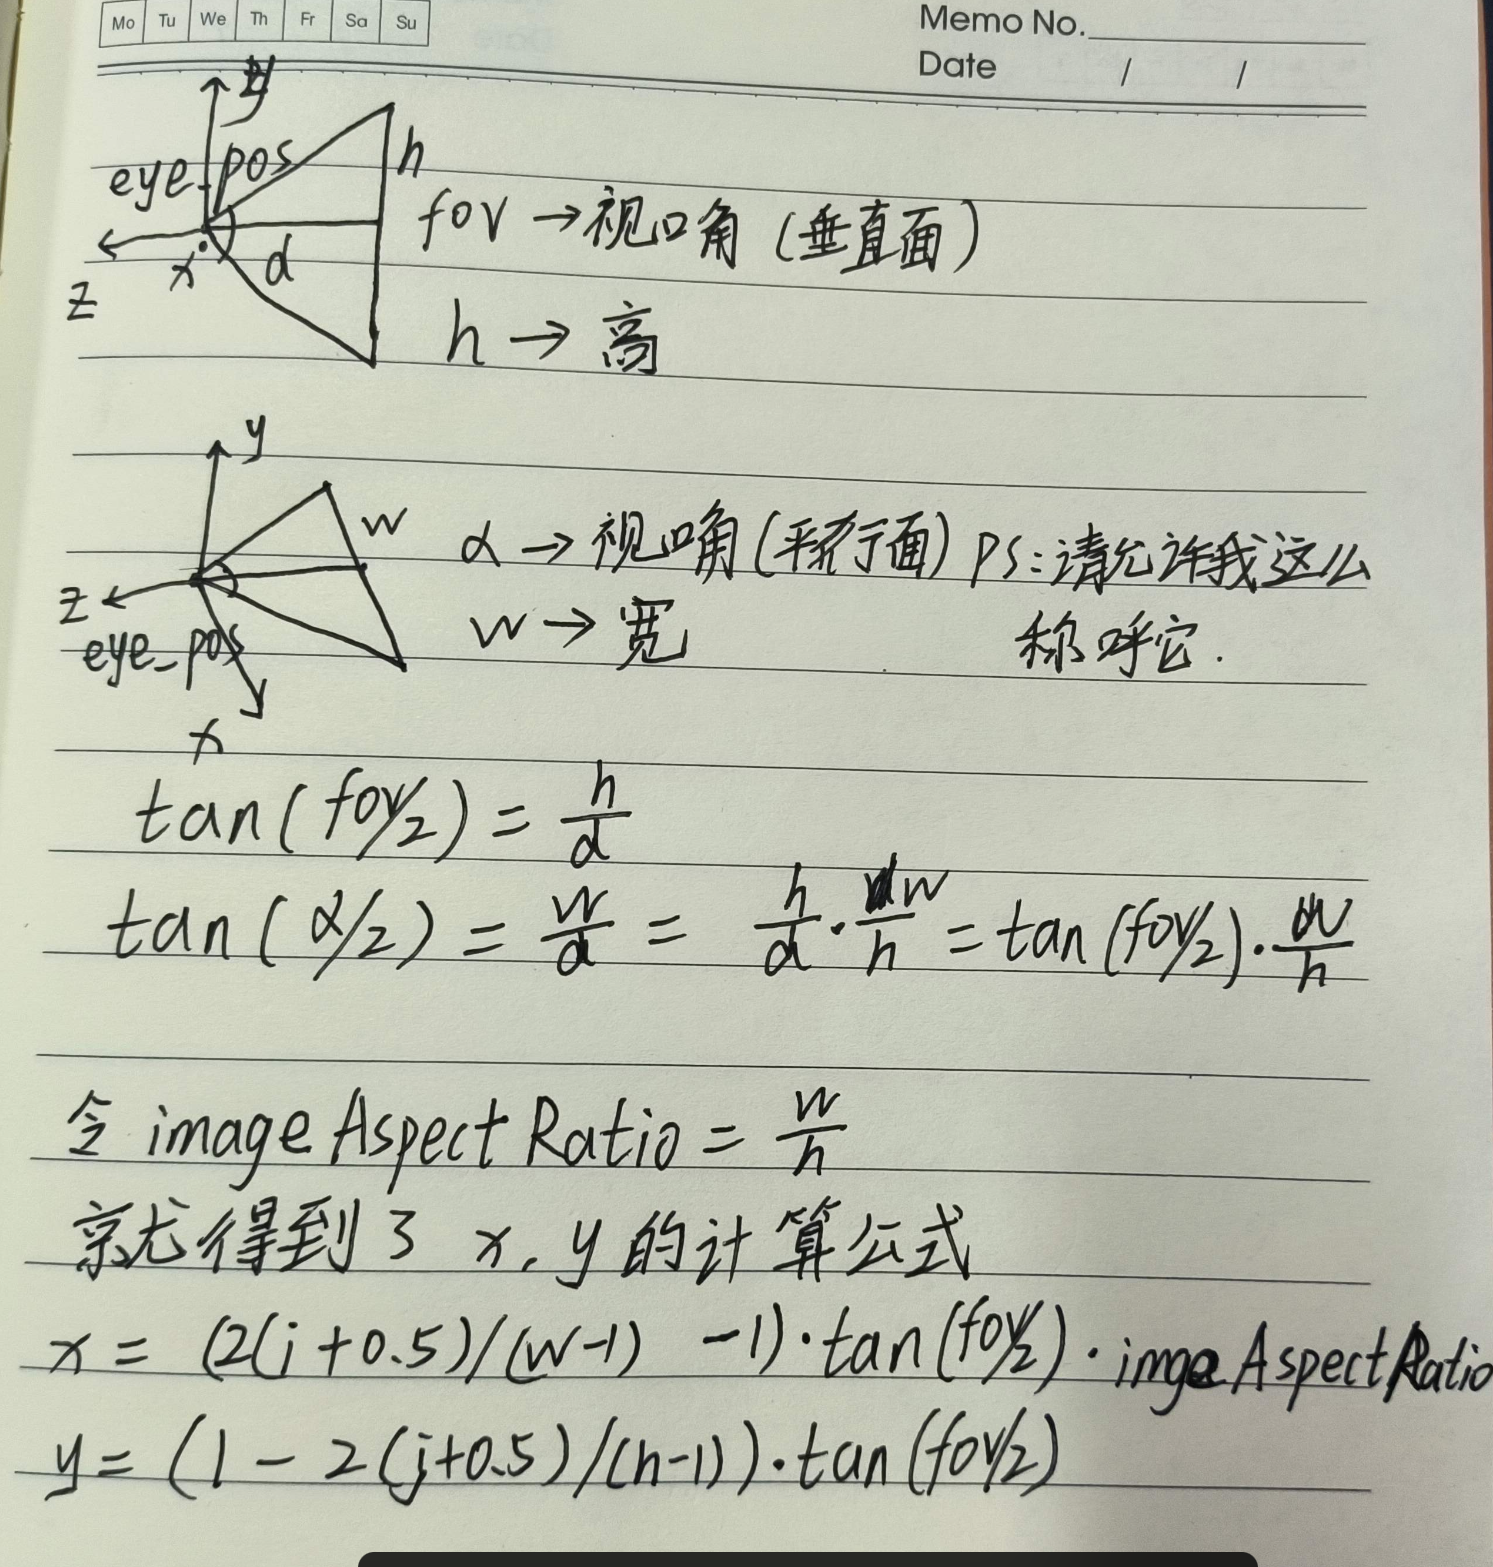 Mo Tu We Th Fr Sa Su
Memo No.
Date / /
y
eye_pos
h
fov → 视口角 (垂直面)
x
d
z
h → 高
y
w
α → 视口角 (平行面) PS: 请允许我这么
z
w → 宽
称呼它.
eye_pos
x
tan(fov/2) = h/d
tan(α/2) = w/d = h/d · w/h = tan(fov/2) · w/h
令 imageAspectRatio = w/h
就得到了 x, y 的计算公式
x = (2(i+0.5)/(w-1) -1)·tan(fov/2)·imgeAspectRatio
y = (1 - 2(j+0.5)/(h-1))·tan(fov/2)